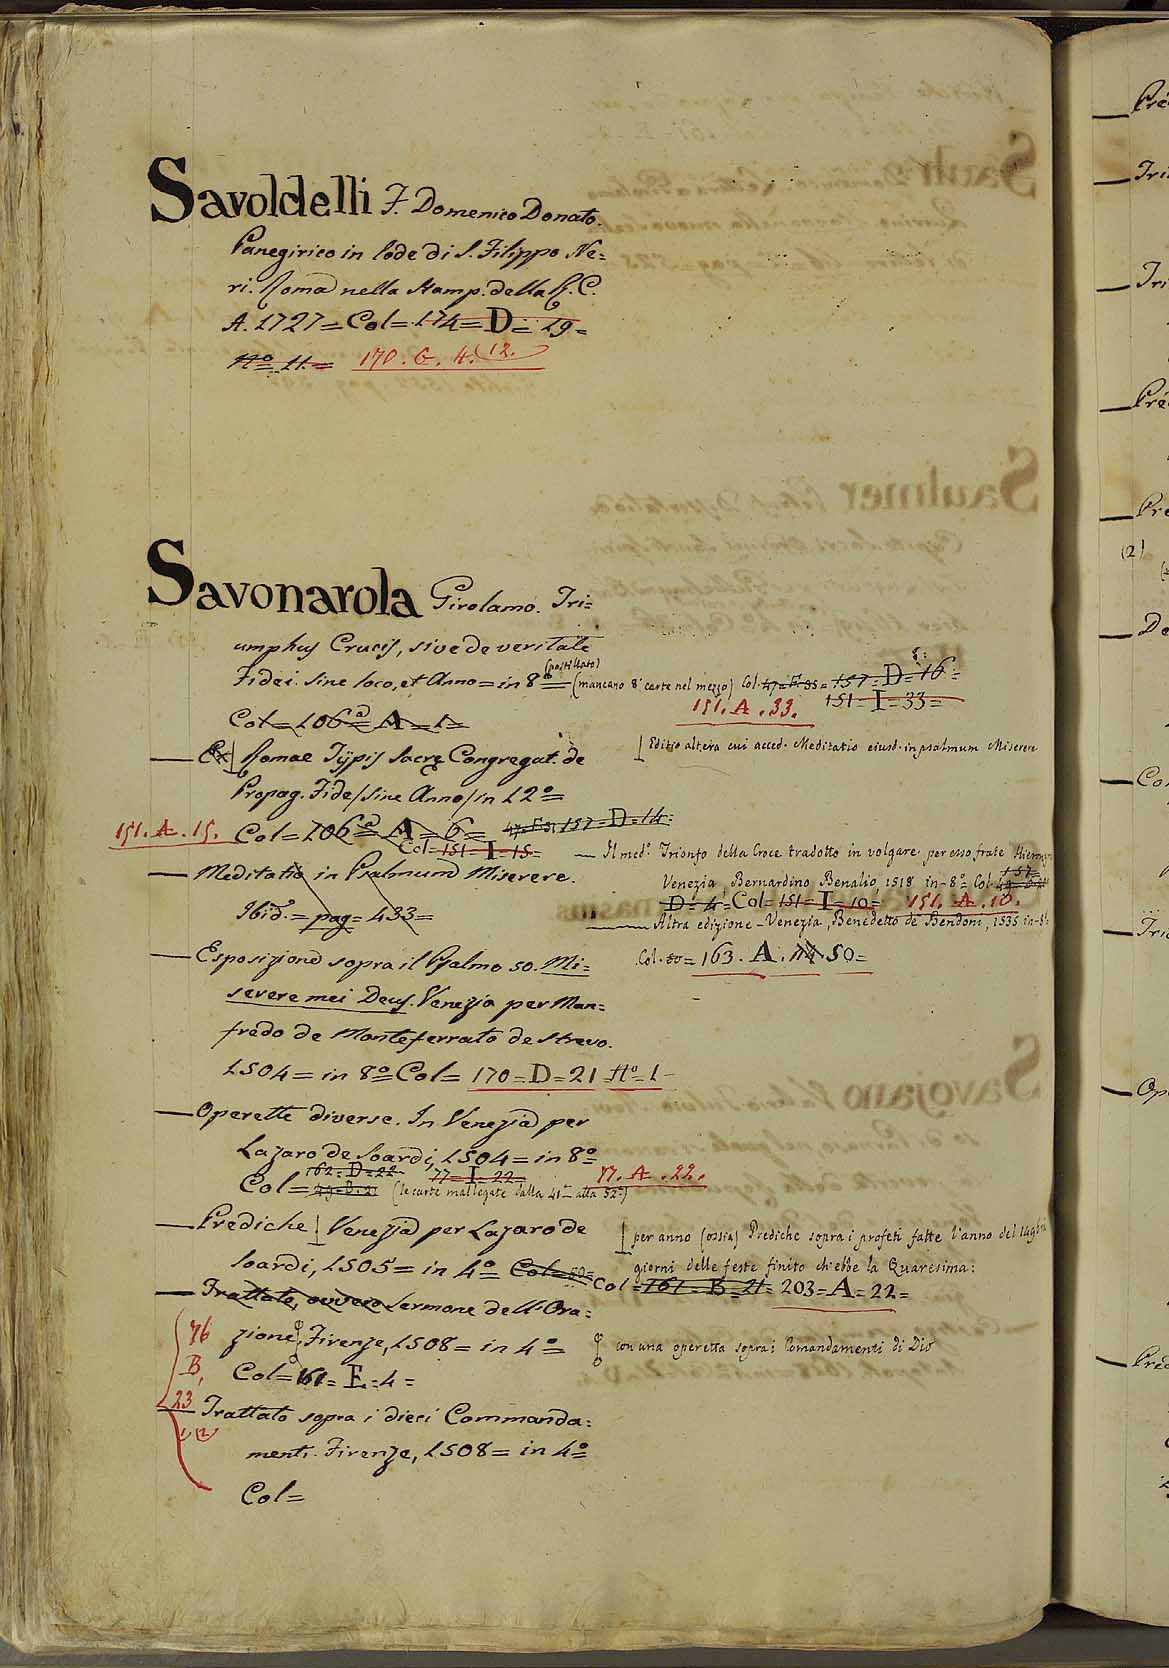 Savoldelli F. Domenico Donato.
Panegirico in lode di S. Filippo Ne=
ri. Roma nella Stamp. della R. C.
A. 1727 = Col = 174 = D = 19 =
No 11 = 170. G. 4. (12.)
Savonarola Girolamo. Tri=
umphus Crucis, sive de veritate
(postillato)
Fidei. Sine loco, et Anno = in 8o = (mancano 8 carte nel mezzo) Col. 47 = F. 35 = 157 = D = 16 =
151. A. 33. 151 = I = 33 =
Col = 106 a = A = 1 =
| Editio altera cui acced. Meditatio eiusd. in psalmum Miserere
— Ex | Romae Typis Sacrę Congregat. de
Propag. Fide / Sine Anno / in 12o =
151. A. 15. Col = 106 a = A = 6 = 157 = D = 14.
Col = 151 = I = 15 =
— Il medo. Trionfo della Croce tradotto in volgare per esso frate Hieronymo
— Meditatio in Psalmum Miserere.
Venezia, Bernardino Benalio, 1518 in-8o. Col. 157 =
Ibid. = pag = 433 =
D = 4 = Col = 151 = I = 10 = 151. A. 10.
— Altra edizione - Venezia, Benedetto de Bendoni, 1535 in-8o.
Col. = 163. A. 50 =
— Esposizione sopra il Psalmo 50. Mi=
serere mei Deus. Venezia per Man=
fredo de Monteferrato de Strevo.
1504 = in 8o Col = 170 = D = 21 No = 1
— Operette diverse. In Venezia per
Lazaro de Soardi, 1504 = in 8o
162 = D = 22 77 = I = 22 = 77. A. 22.
Col = (le carte mallegate dalla 41 alla 52)
— Prediche | Venezia per Lazaro de
| per anno (ossia) Prediche sopra i profeti fatte l'anno del
Soardi, 1505 = in 4o = Col = 50 =
giorni delle feste finito chiebbe la Quaresima:
Col = 161 = B = 21 = 203 = A = 22 =
— Trattato, ovvero Sermone dell' Ora=
zione, Firenze, 1508 = in 4o =
con una operetta sopra i Comandamenti di Dio
Col = 161 = E = 4 =
76
B,
23
1, (2)
— Trattato sopra i dieci Commanda:
menti. Firenze, 1508 = in 4o =
Col =